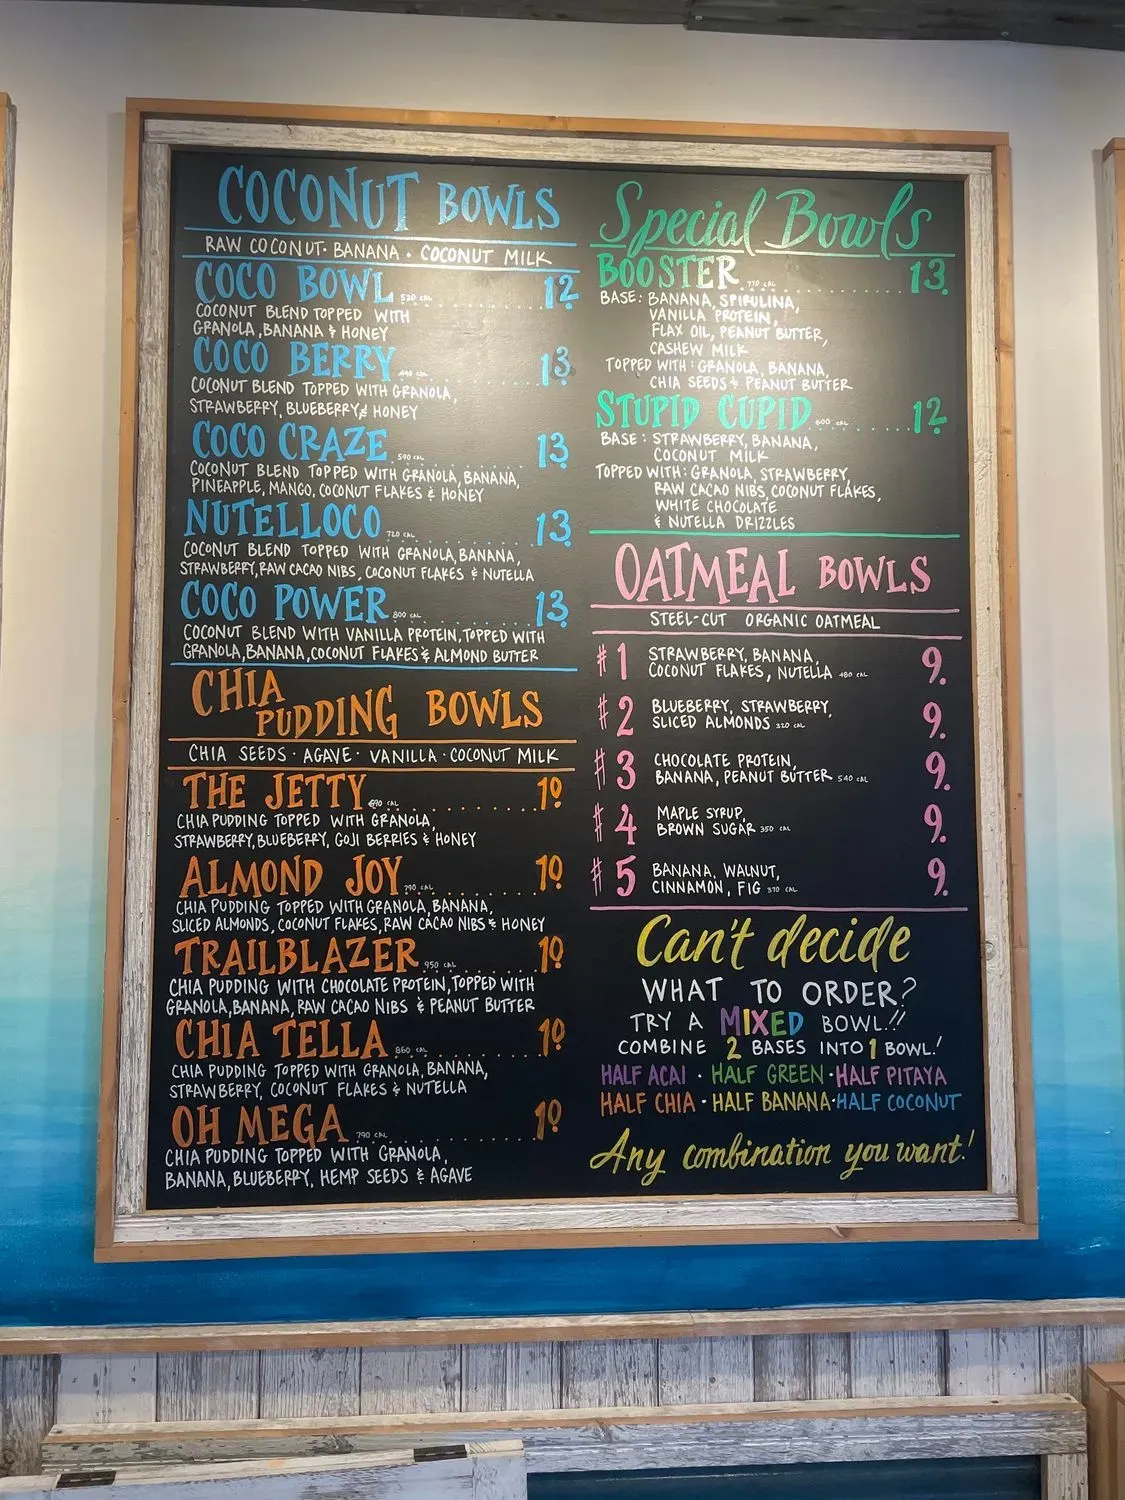 COCONUT BOWLS
RAW COCONUT · BANANA · COCONUT MILK
COCO BOWL 520 CAL 12
COCONUT BLEND TOPPED WITH
GRANOLA, BANANA & HONEY
COCO BERRY CAL 13
COCONUT BLEND TOPPED WITH GRANOLA,
STRAWBERRY, BLUEBERRY & HONEY
COCO CRAZE 590 CAL 13
COCONUT BLEND TOPPED WITH GRANOLA, BANANA,
PINEAPPLE, MANGO, COCONUT FLAKES & HONEY
NUTELLOCO 720 CAL 13
COCONUT BLEND TOPPED WITH GRANOLA, BANANA,
STRAWBERRY, RAW CACAO NIBS, COCONUT FLAKES & NUTELLA
COCO POWER 800 CAL 13
COCONUT BLEND WITH VANILLA PROTEIN, TOPPED WITH
GRANOLA, BANANA, COCONUT FLAKES & ALMOND BUTTER
CHIA PUDDING BOWLS
CHIA SEEDS · AGAVE · VANILLA · COCONUT MILK
THE JETTY CAL 10
CHIA PUDDING TOPPED WITH GRANOLA,
STRAWBERRY, BLUEBERRY, GOJI BERRIES & HONEY
ALMOND JOY 790 CAL 10
CHIA PUDDING TOPPED WITH GRANOLA, BANANA,
SLICED ALMONDS, COCONUT FLAKES, RAW CACAO NIBS & HONEY
TRAILBLAZER 950 CAL 10
CHIA PUDDING WITH CHOCOLATE PROTEIN, TOPPED WITH
GRANOLA, BANANA, RAW CACAO NIBS & PEANUT BUTTER
CHIA TELLA 860 CAL 10
CHIA PUDDING TOPPED WITH GRANOLA, BANANA,
STRAWBERRY, COCONUT FLAKES & NUTELLA
OH MEGA 790 CAL 10
CHIA PUDDING TOPPED WITH GRANOLA,
BANANA, BLUEBERRY, HEMP SEEDS & AGAVE
Special Bowls
BOOSTER 770 CAL 13
BASE: BANANA, SPIRULINA,
VANILLA PROTEIN,
FLAX OIL, PEANUT BUTTER,
CASHEW MILK
TOPPED WITH: GRANOLA, BANANA,
CHIA SEEDS & PEANUT BUTTER
STUPID CUPID 600 CAL 12
BASE: STRAWBERRY, BANANA,
COCONUT MILK
TOPPED WITH: GRANOLA, STRAWBERRY,
RAW CACAO NIBS, COCONUT FLAKES,
WHITE CHOCOLATE
& NUTELLA DRIZZLES
OATMEAL BOWLS
STEEL-CUT ORGANIC OATMEAL
#1 STRAWBERRY, BANANA, 9.
COCONUT FLAKES, NUTELLA 480 CAL
#2 BLUEBERRY, STRAWBERRY, 9.
SLICED ALMONDS 320 CAL
#3 CHOCOLATE PROTEIN, 9.
BANANA, PEANUT BUTTER 540 CAL
#4 MAPLE SYRUP, 9.
BROWN SUGAR 350 CAL
#5 BANANA, WALNUT, 9.
CINNAMON, FIG 370 CAL
Can't decide
WHAT TO ORDER?
TRY A MIXED BOWL!!
COMBINE 2 BASES INTO 1 BOWL!
HALF ACAI · HALF GREEN · HALF PITAYA
HALF CHIA · HALF BANANA · HALF COCONUT
Any combination you want!